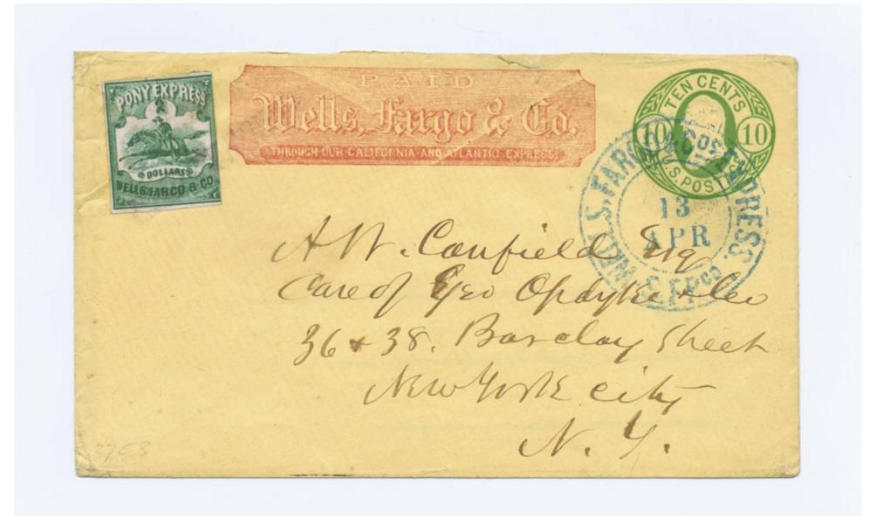 PONY EXPRESS
2
DOLLARS
WELLS FARGO & CO.
PAID
Wells, Fargo & Co.
THROUGH OUR CALIFORNIA AND ATLANTIC EXPRESS.
TEN CENTS
10 10
U.S. POSTAGE
WELLS, FARGO & CO'S EXPRESS.
13
APR
S. FR CO
A W. Canfield Esq
Care of Geo Opdyke & Co
36 & 38. Barclay Street
New York City
N. Y.